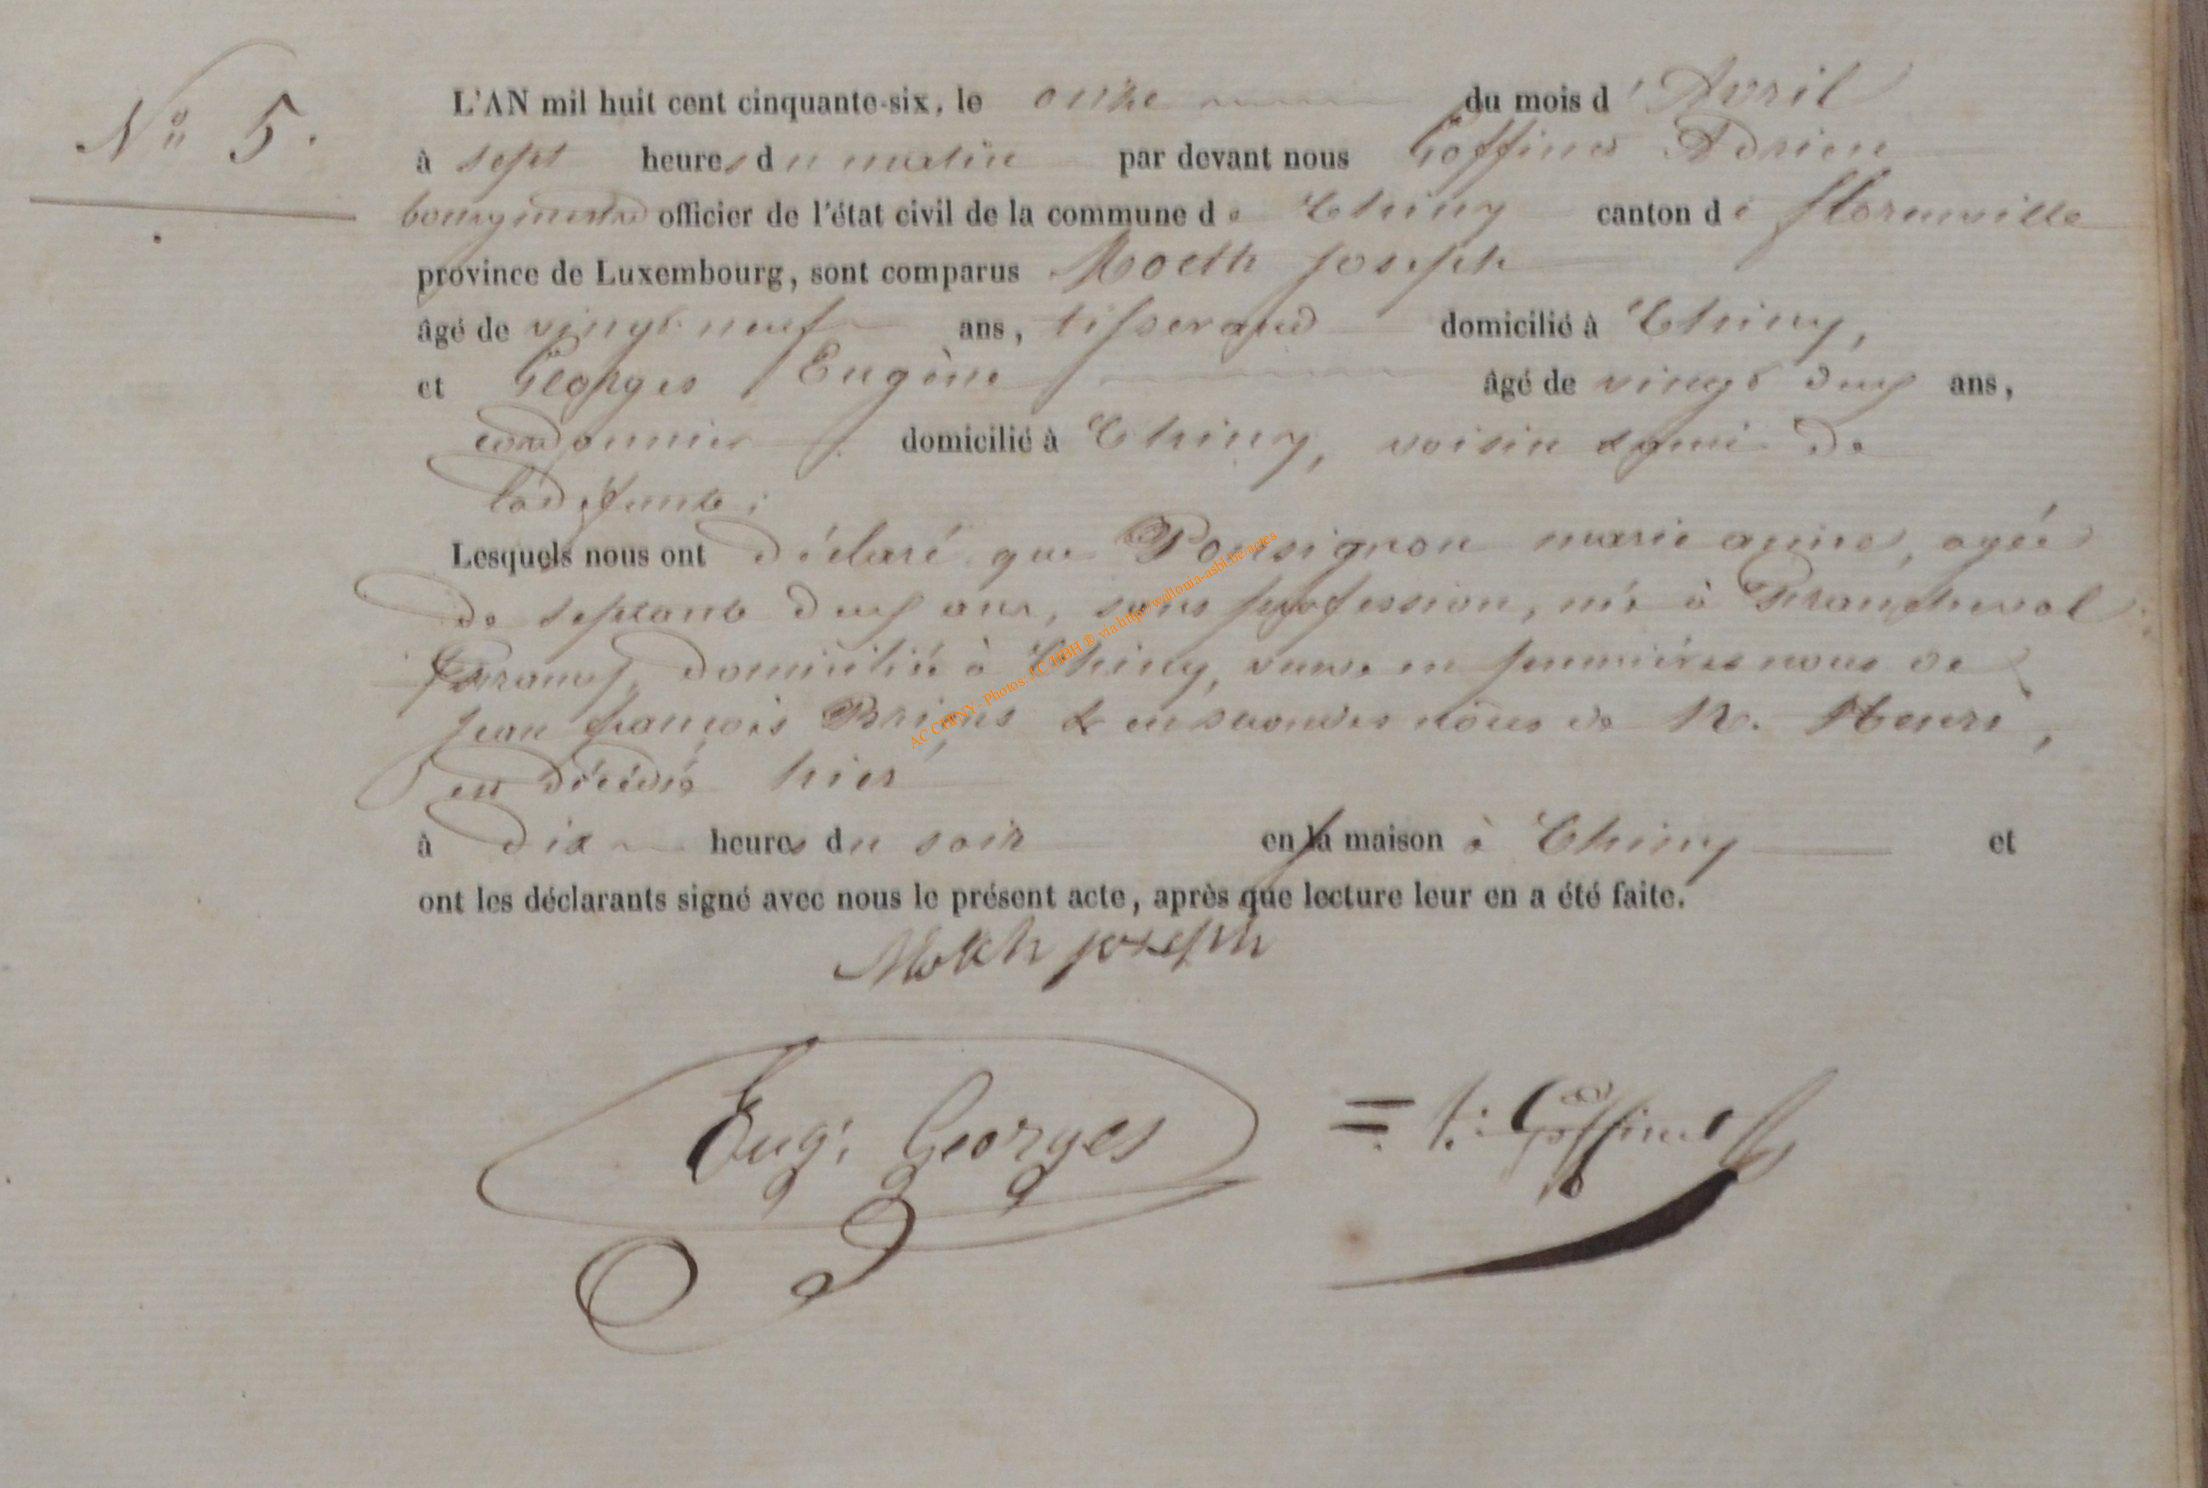 N° 5.
L'AN mil huit cent cinquante-six, le onze du mois d'Avril
à sept heures du matin par devant nous Goffinet Adrien
bourgmestre officier de l'état civil de la commune de Chiny canton de florenville
province de Luxembourg, sont comparus Moeth joseph
âgé de vingt neuf ans, tisserand domicilié à Chiny,
et Georges Eugène âgé de vingt deux ans,
cordonnier domicilié à Chiny, voisin & ami de
la défunte;
Lesquels nous ont déclaré que Ponsignon marie anne, agée
de septante deux ans, sans profession, née à Francheval
domicilié à Chiny, veuve en premières noces de
jean françois & en secondes nôces de N. Henri,
est décédée hier
à dix heures du soir en sa maison à Chiny et
ont les déclarants signé avec nous le présent acte, après que lecture leur en a été faite.
joseph
Eug: Georges
Goffinet
AC CHINY- Photos: via http://wallonia-asbl.be/actes